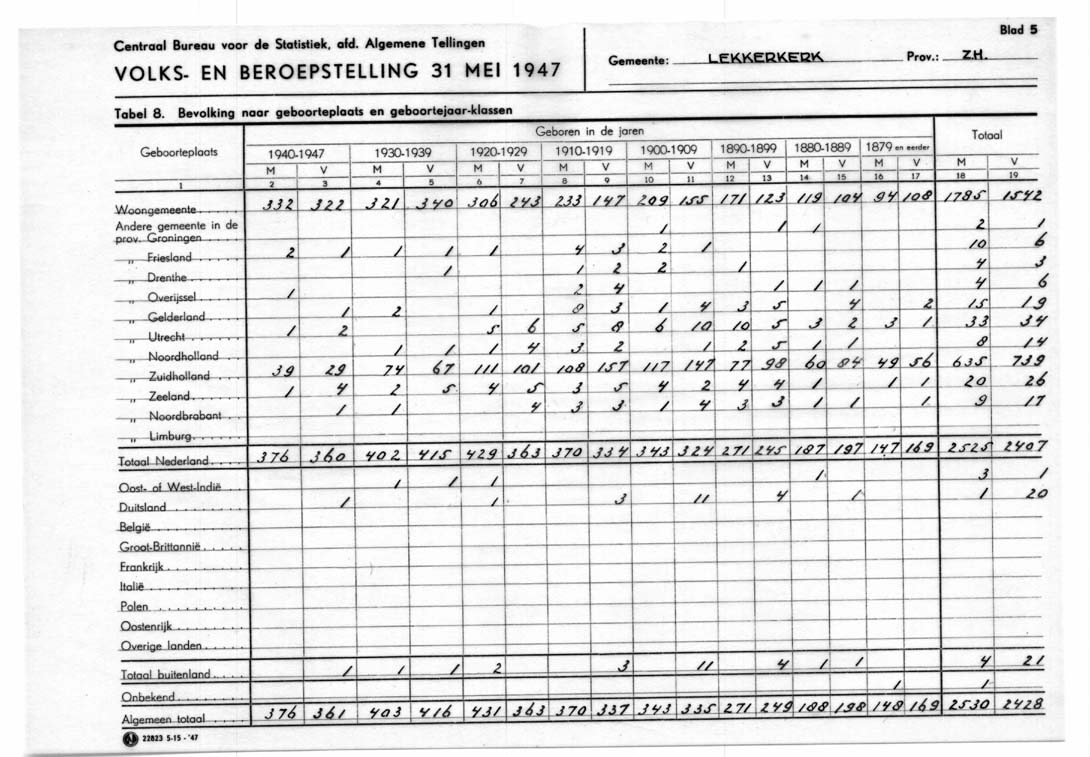 Blad 5
Centraal Bureau voor de Statistiek, afd. Algemene Tellingen
VOLKS- EN BEROEPSTELLING 31 MEI 1947
Gemeente: LEKKERKERK Prov.: Z.H.
Tabel 8. Bevolking naar geboorteplaats en geboortejaar-klassen
Geboorteplaats Geboren in de jaren Totaal
1940-1947 1930-1939 1920-1929 1910-1919 1900-1909 1890-1899 1880-1889 1879 en eerder
M V M V M V M V M V M V M V M V M V
1 2 3 4 5 6 7 8 9 10 11 12 13 14 15 16 17 18 19
Woongemeente 332 322 321 340 306 243 233 147 209 155 171 123 119 104 94 108 1785 1542
Andere gemeente in de
prov. Groningen 1 1 1 2 1
„ Friesland 2 1 1 1 1 4 3 2 1 10 6
„ Drenthe 1 1 2 2 1 4 3
„ Overijssel 1 2 4 1 1 1 4 6
„ Gelderland 1 2 1 8 3 1 4 3 5 4 2 15 19
„ Utrecht 1 2 5 6 5 8 6 10 10 5 3 2 3 1 33 34
„ Noordholland 1 1 1 4 3 2 1 2 5 1 1 8 14
„ Zuidholland 39 29 74 67 111 101 108 157 117 147 77 98 60 84 49 56 635 739
„ Zeeland 1 4 2 5 4 5 3 5 4 2 4 4 1 1 1 20 26
„ Noordbrabant 1 1 4 3 3 1 4 3 3 1 1 1 9 17
„ Limburg
Totaal Nederland 376 360 402 415 429 363 370 334 343 324 271 245 187 197 147 169 2525 2407
Oost- of West-Indië 1 1 1 1 3 1
Duitsland 1 1 3 11 4 1 1 20
België
Groot-Brittannië
Frankrijk
Italië
Polen
Oostenrijk
Overige landen
Totaal buitenland 1 1 1 2 3 11 4 1 1 4 21
Onbekend 1 1
Algemeen totaal 376 361 403 416 431 363 370 337 343 335 271 249 188 198 148 169 2530 2428
22823 5-15 - '47